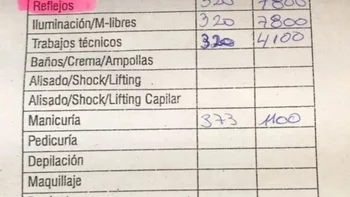 Reflejos 320 7800
Iluminación/M-libres 320 7800
Trabajos técnicos 320 4100
Baños/Crema/Ampollas
Alisado/Shock/Lifting
Alisado/Shock/Lifting Capilar
Manicuría 373 1100
Pedicuría
Depilación
Maquillaje